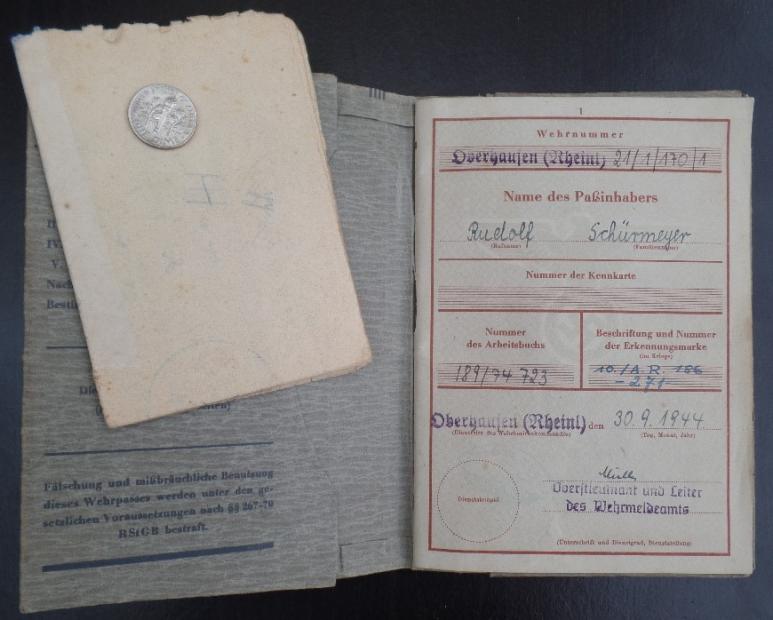 II
IV.
V.
Nach
Besti
Di
Fälschung und mißbräuchliche Benutzung
dieses Wehrpasses werden unter den ge-
setzlichen Voraussetzungen nach §§ 267-79
RStGB bestraft.
1
Wehrnummer
Oberhausen (Rheinl) 21/1/170/1
Name des Paßinhabers
Rudolf Schürmeyer
(Rufname) (Familienname)
Nummer der Kennkarte
Nummer
des Arbeitsbuchs
189/74 723
Beschriftung und Nummer
der Erkennungsmarke
(im Kriege)
10./A.R. 186
-271
Oberhausen (Rheinl) den 30.9.1944
(Tag, Monat, Jahr)
Dienstsiegel
Oberstleutnant und Leiter
des Wehrmeldeamts
(Unterschrift und Dienstgrad, Dienststellung)